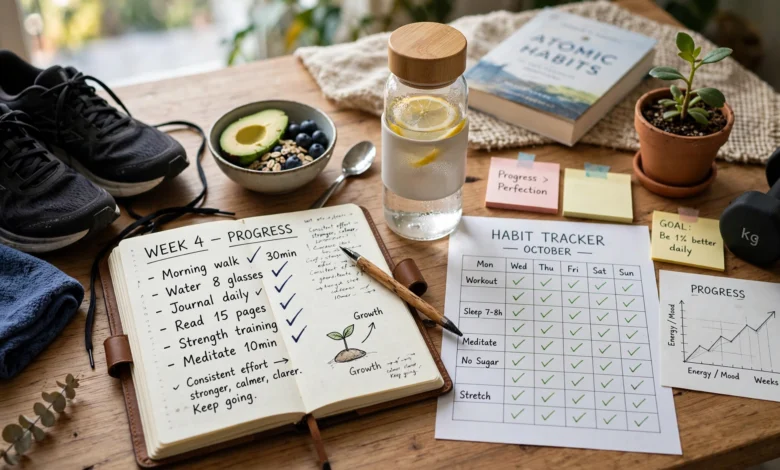 WEEK 4 – PROGRESS
- Morning walk ✓ 30min
- Water 8 glasses ✓
- Journal daily ✓
- Read 15 pages ✓
- Strength training ✓
- Meditate 10min ✓
✓ Consistent effort →
stronger, calmer, clarer.
Keep going.
Consistent effort
stronger, calmer,
Growth
Growth
Keep going.
ATOMIC
HABITS
Progress >
Perfection
GOAL:
Be 1% better
daily
kg
HABIT TRACKER
— OCTOBER —
Mon Wed Thu Fri Sat Sun
Workout
Sleep 7-8h
Meditate
No Sugar
Stretch
PROGRESS
Energy / Mood
Energy / Mood Weeks